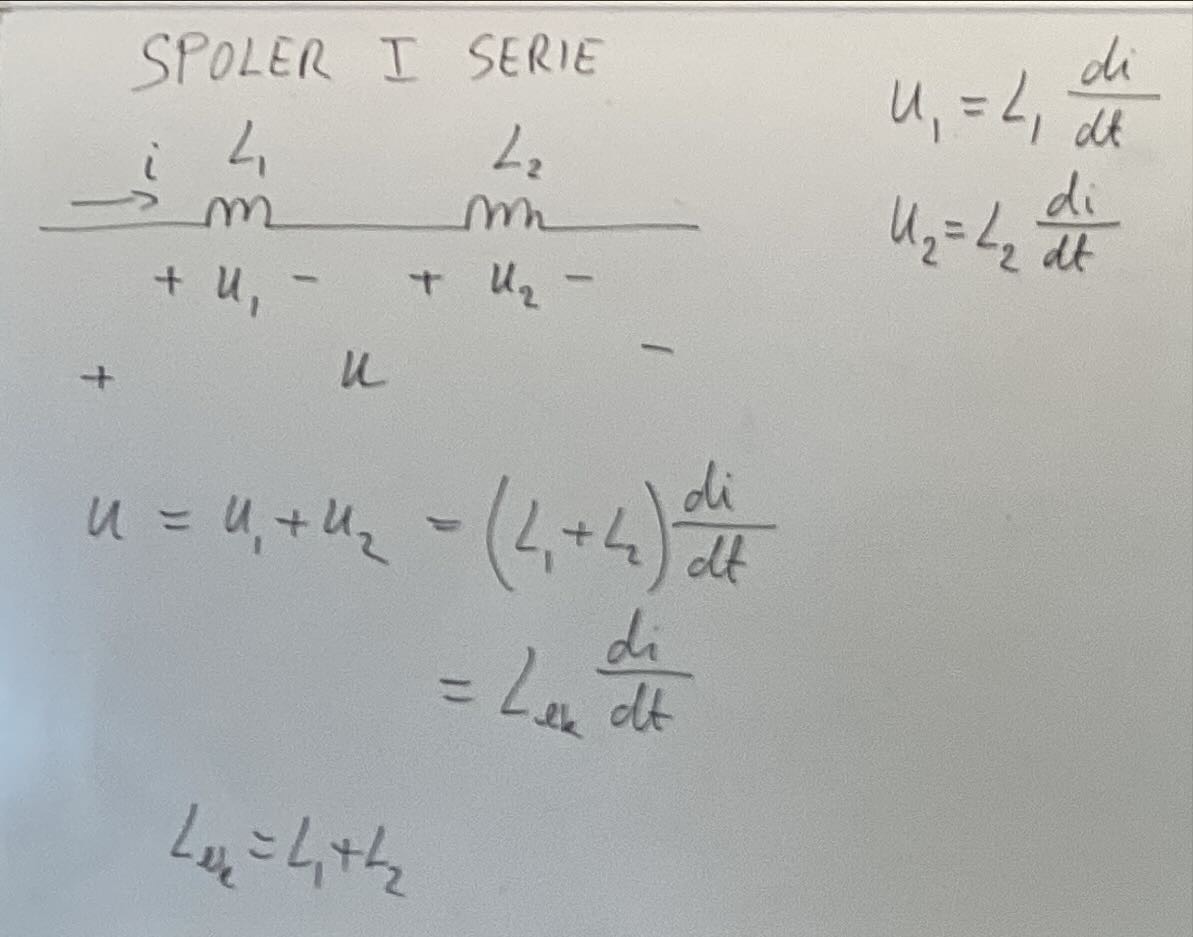 SPOLER I SERIE
i L₁ L₂
+ u₁ - + u₂ -
+ u -
u₁ = L₁ di/dt
u₂ = L₂ di/dt
u = u₁ + u₂ = (L₁ + L₂) di/dt
= Lek di/dt
Lek = L₁ + L₂